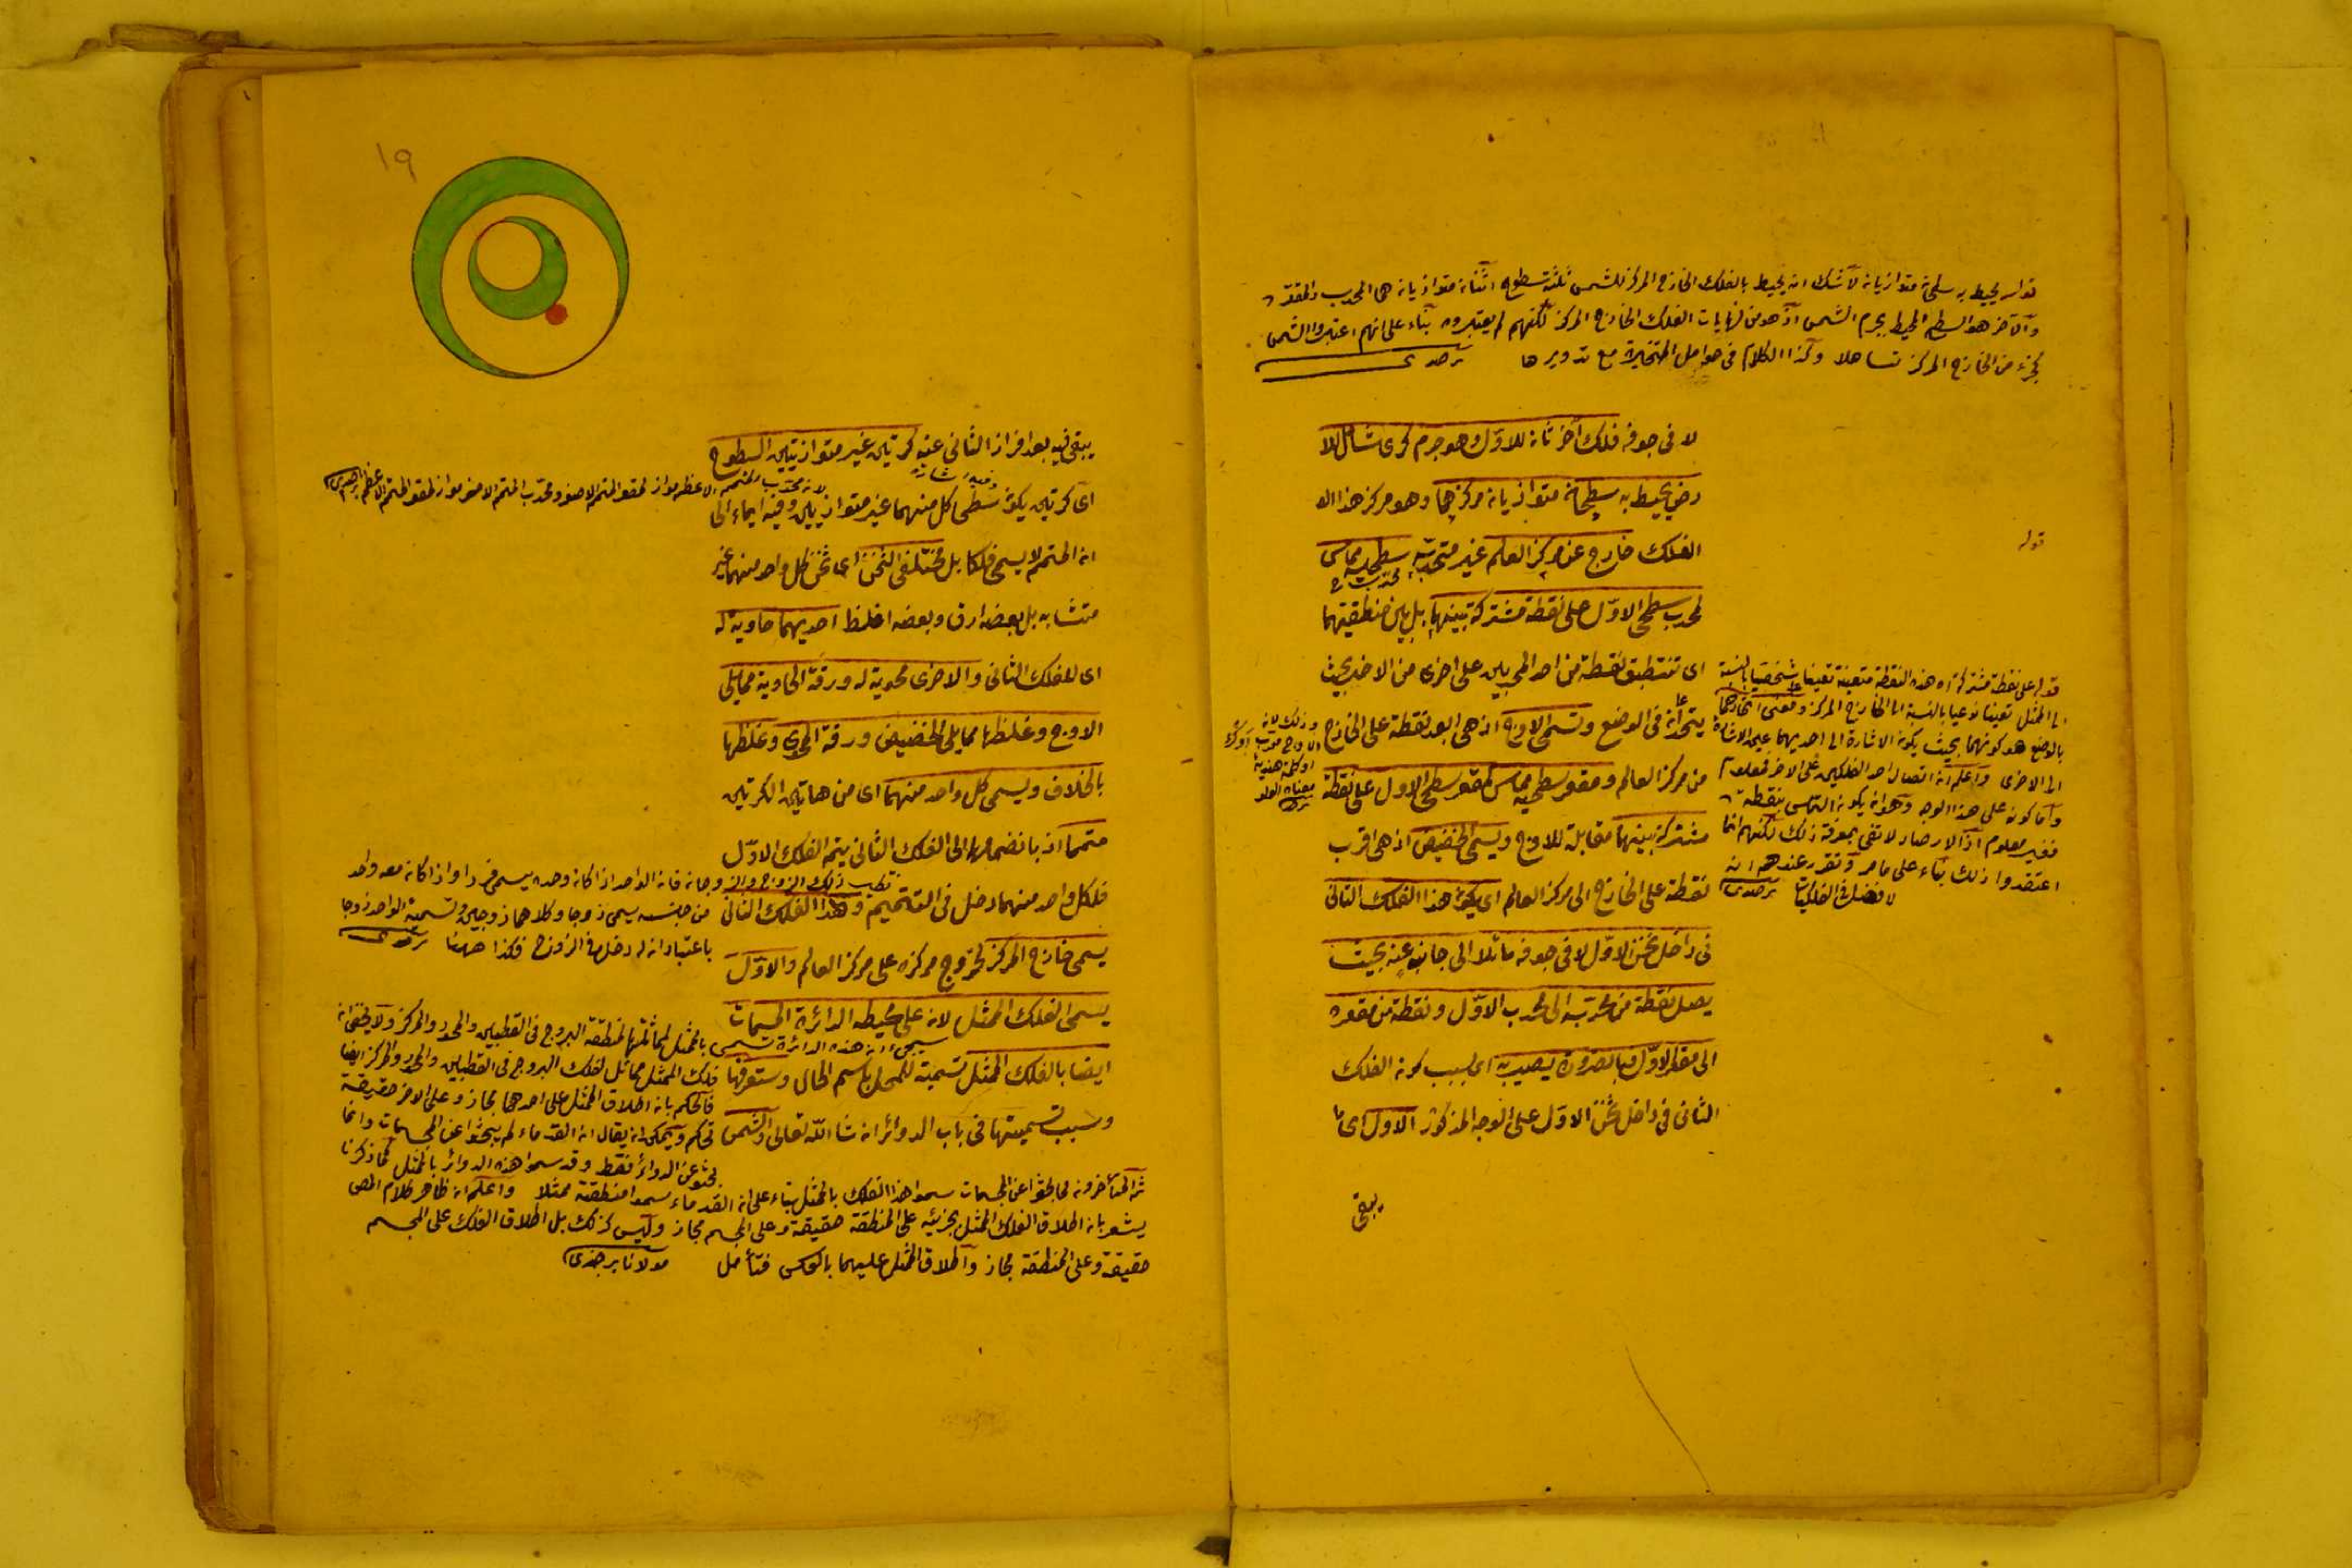 قوله يحيط به سطحان متوازيان لا شك انه يحيط بالفلك الخارج المركز للشمس ثلثة سطوح اثنان متوازيان هما المحدب والمقعر
والآخر هو السطح المحيط بجرم الشمس اذ هو من نهايات الفلك الخارج المركز لكنهم لم يعتبروه بناء على انهم اعتبروا الشمس
كجزء من الخارج المركز تساهلا وكذا الكلام في حوامل المتحيرة مع تداويرها
لا في جوفه فلك آخر ثان للاول وهو جرم كرى شامل للا
رض يحيط به سطحان متوازيان مركزهما وهو مركز هذا
الفلك خارج عن مركز العالم غير متحد به سطحيه مماس
محدب
لمحدب سطحى الاول على نقطة مشتركة بينهما بل بين منطقتيهما
اى تنطبق نقطة من احد المحدبين على اخرى من الآخر بحيث
يتحدان في الوضع وتسمى الاوج اذ هى ابعد نقطة على الخارج
من مركز العالم ومقعر سطحيه مماس لمقعر سطحى الاول على نقطة
مشتركة بينهما مقابلة للاوج ويسمى الحضيض اذ هى اقرب
نقطة على الخارج الى مركز العالم اى يكون هذا الفلك الثانى
في داخل ثخن الاول لا في جوفه مائلا الى جانب عنه بحيث
يصل نقطة من محدبه الى محدب الاول ونقطة من مقعره
الى مقعر الاول فبالضرورة يصير به اى بسبب كون الفلك
الثانى في داخل ثخن الاول على الوجه المذكور الاول اى ما
يبقى
قوله
قوله على نقطة مشتركة اه هذه النقطة متعينة تعينا شخصيا بالنسبة
الى الممثل تعينا نوعيا بالنسبة الى الخارج المركز ومعنى اتحادهما
بالوضع هو كونهما بحيث يكون الاشارة الى احديهما عين الاشارة
الى الاخرى واعلم ان اتصال احد الفلكين على الآخر فمعلوم
واما كونه على هذا الوجه وهو ان يكون التماس بنقطة
فغير معلوم اذ الارصاد لا تفى بمعرفة ذلك لكنهم انما
اعتقدوا ذلك بناء على ما مر وتقرر عندهم انه
لا فضل في الفلكيات
وذلك لانه
١٩
يبقى فيه بعد افراز الثانى عنه كرتين غير متوازيتين السطوح
اى كرتين يكون سطحى كل منهما غير متوازيين وفيه ايماء الى
ان المتمم لا يسمى فلكا بل مختلفى الثخن اى ثخن كل واحد منهما غير
متشابه بل بعضه ارق وبعضه اغلظ احديهما حاوية له
اى للفلك الثانى والاخرى محوية له ورقة الحاوية مما يلى
الاوج وغلظها مما يلى الحضيض ورقة المحوى وغلظها
بالخلاف ويسمى كل واحد منهما اى من هاتين الكرتين
متمما اذ بانضمامها الى الفلك الثانى يتم الفلك الاول
فلكل واحد منهما دخل في التتميم وهذا الفلك الثانى
يسمى خارج المركز لخروج مركزه على مركز العالم والاول
يسمى الفلك الممثل لانه على محيطه الدائرة المسمات
ايضا بالفلك الممثل تسمية للمحل باسم الحال وستعرفها
وسبب تسميتها في باب الدوائر ان شا الله تعالى والشمس
وجانه فانه الواحد اذا كانه وحده يسمى فردا واذا كانه معه واحد
من جنسه يسمى زوجا وكلاهما زوجين وتسمية الواحد زوجا
باعتبار انه له دخل في الزوج فكذا ههنا
سيجىء ان هذه الدائرة تسمى
بالممثل لمماثلتها لمنطقة البروج في القطبين والمحور والمركز ولا يخفى ان
فلك الممثل مماثل لفلك البروج في القطبين والمحور والمركز ايضا
فالحكم بان اطلاق الممثل على احدهما مجاز وعلى الآخر حقيقة
تحكم ويمكن ان يقال ان القدماء لم يبحثوا عن المجسمات وانما
بحثوا عن الدوائر فقط وقد سموا هذه الدوائر بالممثل كما ذكرنا
ثم المتأخرون لما بحثوا عن المجسمات سموا هذا الفلك بالممثل بناء على ان القدماء سموا منطقته ممثلا واعلم ان ظاهر كلام المص
يشعر بان اطلاق الفلك الممثل بجزئيه على المنطقة حقيقة وعلى المجسم مجاز وليس كذلك بل اطلاق الفلك على المجسم
حقيقة وعلى المنطقة مجاز واطلاق الممثل عليهما بالعكس فتأمل مولانا برجندى